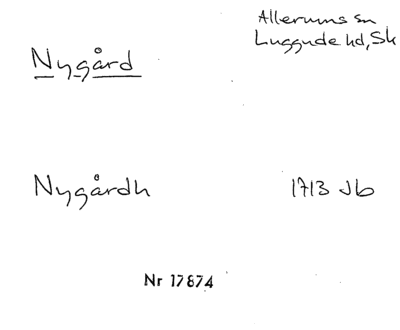 Allerums sn
Luggude hd, Sk
Nygård
Nygårdh 1713 Jb
Nr 17874